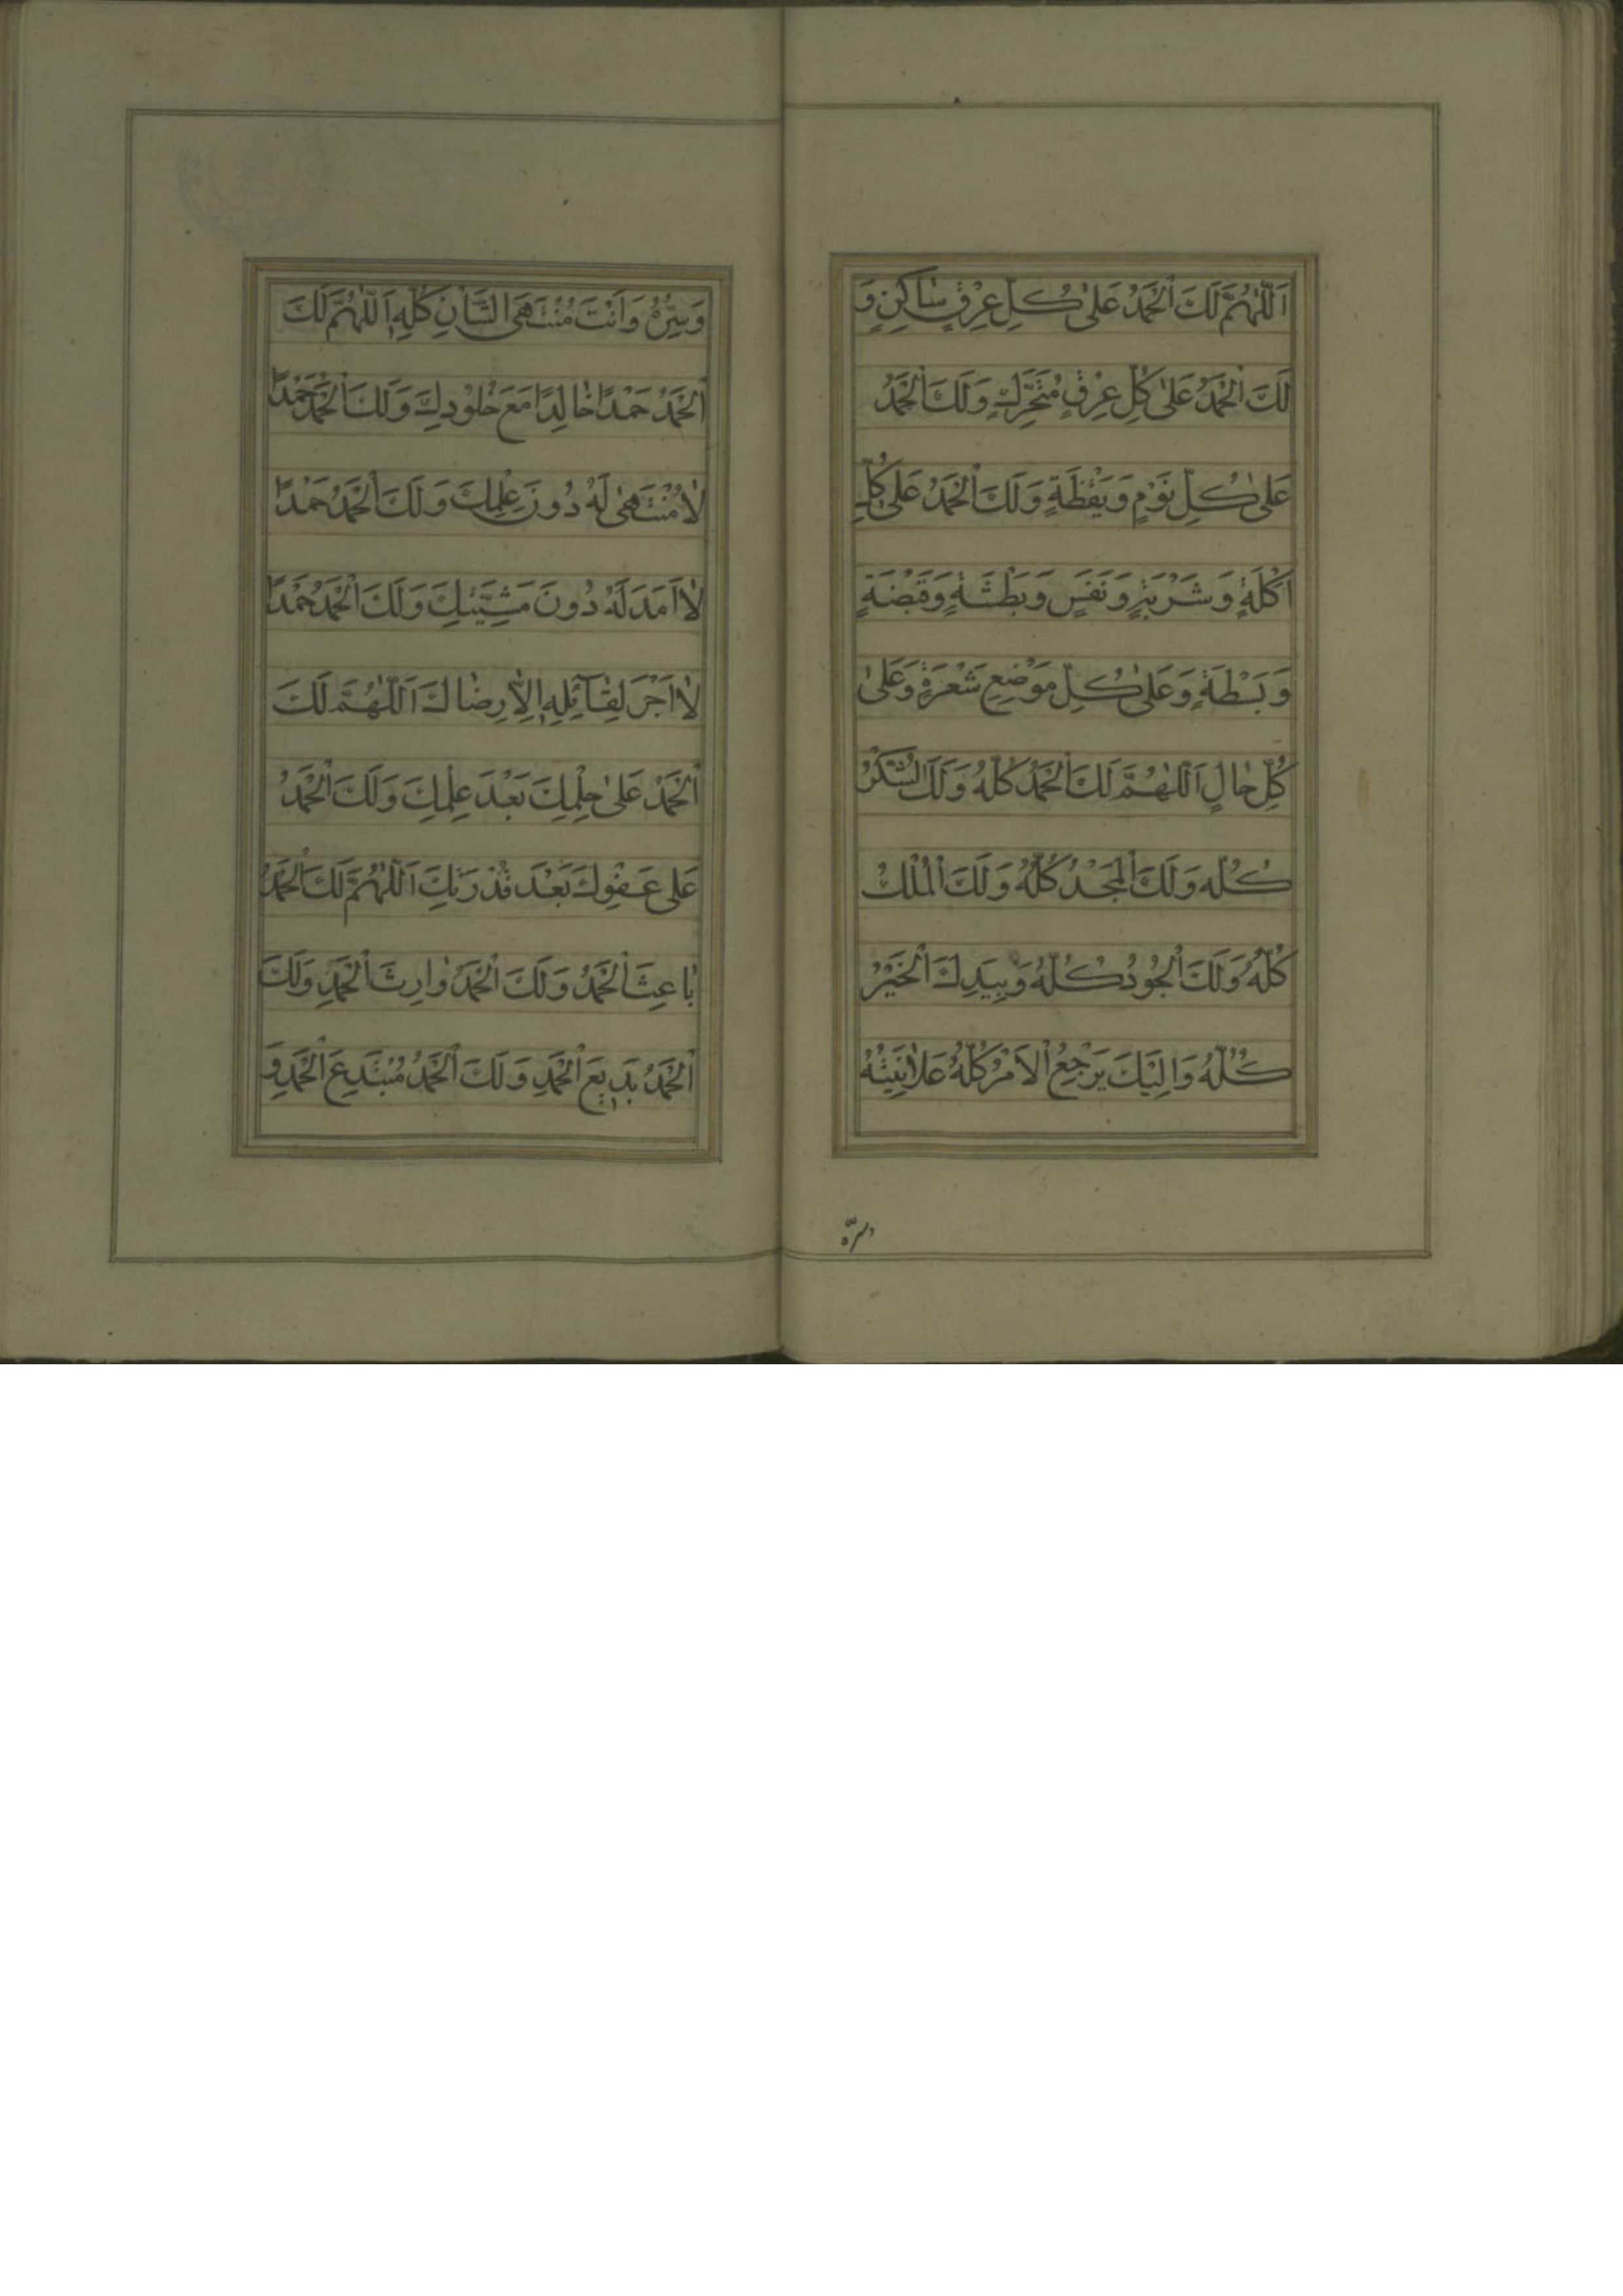 اَللّٰهُمَّ لَكَ اْلحَمْدُ عَلىٰ كُلِّ عِرْقٍ سٰاكِنٍ وَ
لَكَ اْلحَمْدُ عَلىٰ كُلِّ عِرْقٍ مُتَحَرِّكٍ وَلَكَ اْلحَمْدُ
عَلىٰ كُلِّ نَوْمٍ وَيَقْظَةٍ وَلَكَ اْلحَمْدُ عَلىٰ كُلِّ
اَكْلَةٍ وَشَرْبَةٍ وَنَفَسٍ وَبَطْشَةٍ وَقَبْضَةٍ
وَبَسْطَةٍ وَعَلىٰ كُلِّ مَوْضِعِ شَعْرَةٍ وَعَلىٰ
كُلِّ حٰالٍ اَللّٰهُمَّ لَكَ اْلحَمْدُ كُلُّهُ وَلَكَ الشُّكْرُ
كُلُّه وَلَكَ اْلمَجْدُ كُلُّهُ وَلَكَ اْلمُلْكُ
كُلُّهُ وَلَكَ اْلجُودُ كُلُّهُ وَبِيَدِكَ اْلخَيْرُ
كُلُّهُ وَاِلَيْكَ يَرْجِعُ اْلاَمْرُ كُلُّهُ عَلاٰنِيَتُهُ
وسرّه
وَسِرُّهُ وَاَنْتَ مُنْتَهَى الشَّاْنِ كُلِّهِ اَللّٰهُمَّ لَكَ
اْلحَمْدُ حَمْدًا خٰالِدًا مَعَ خُلُودِكَ وَلَكَ اْلحَمْدُ حَمْدًا
لاٰ مُنْتَهىٰ لَهُ دُونَ عِلْمِكَ وَلَكَ اْلحَمْدُ حَمْدًا
لاٰ اَمَدَ لَهُ دُونَ مَشِيَّتِكَ وَلَكَ اْلحَمْدُ حَمْدًا
لاٰ اَجْرَ لِقٰآئِلِهِ اِلاّٰ رِضٰاكَ اَللّٰهُمَّ لَكَ
اْلحَمْدُ عَلىٰ حِلْمِكَ بَعْدَ عِلْمِكَ وَلَكَ اْلحَمْدُ
عَلى عَفْوِكَ بَعْدَ قُدْرَتِكَ اَللّٰهُمَّ لَكَ اْلحَمْدُ
بٰاعِثَ اْلحَمْدُ وَلَكَ اْلحَمْدُ وٰارِثَ اْلحَمْدِ وَلَكَ
اْلحَمْدُ بَدِيعَ اْلحَمْدِ وَلَكَ اْلحَمْدُ مُبْتَدِعَ اْلحَمْدِ وَ